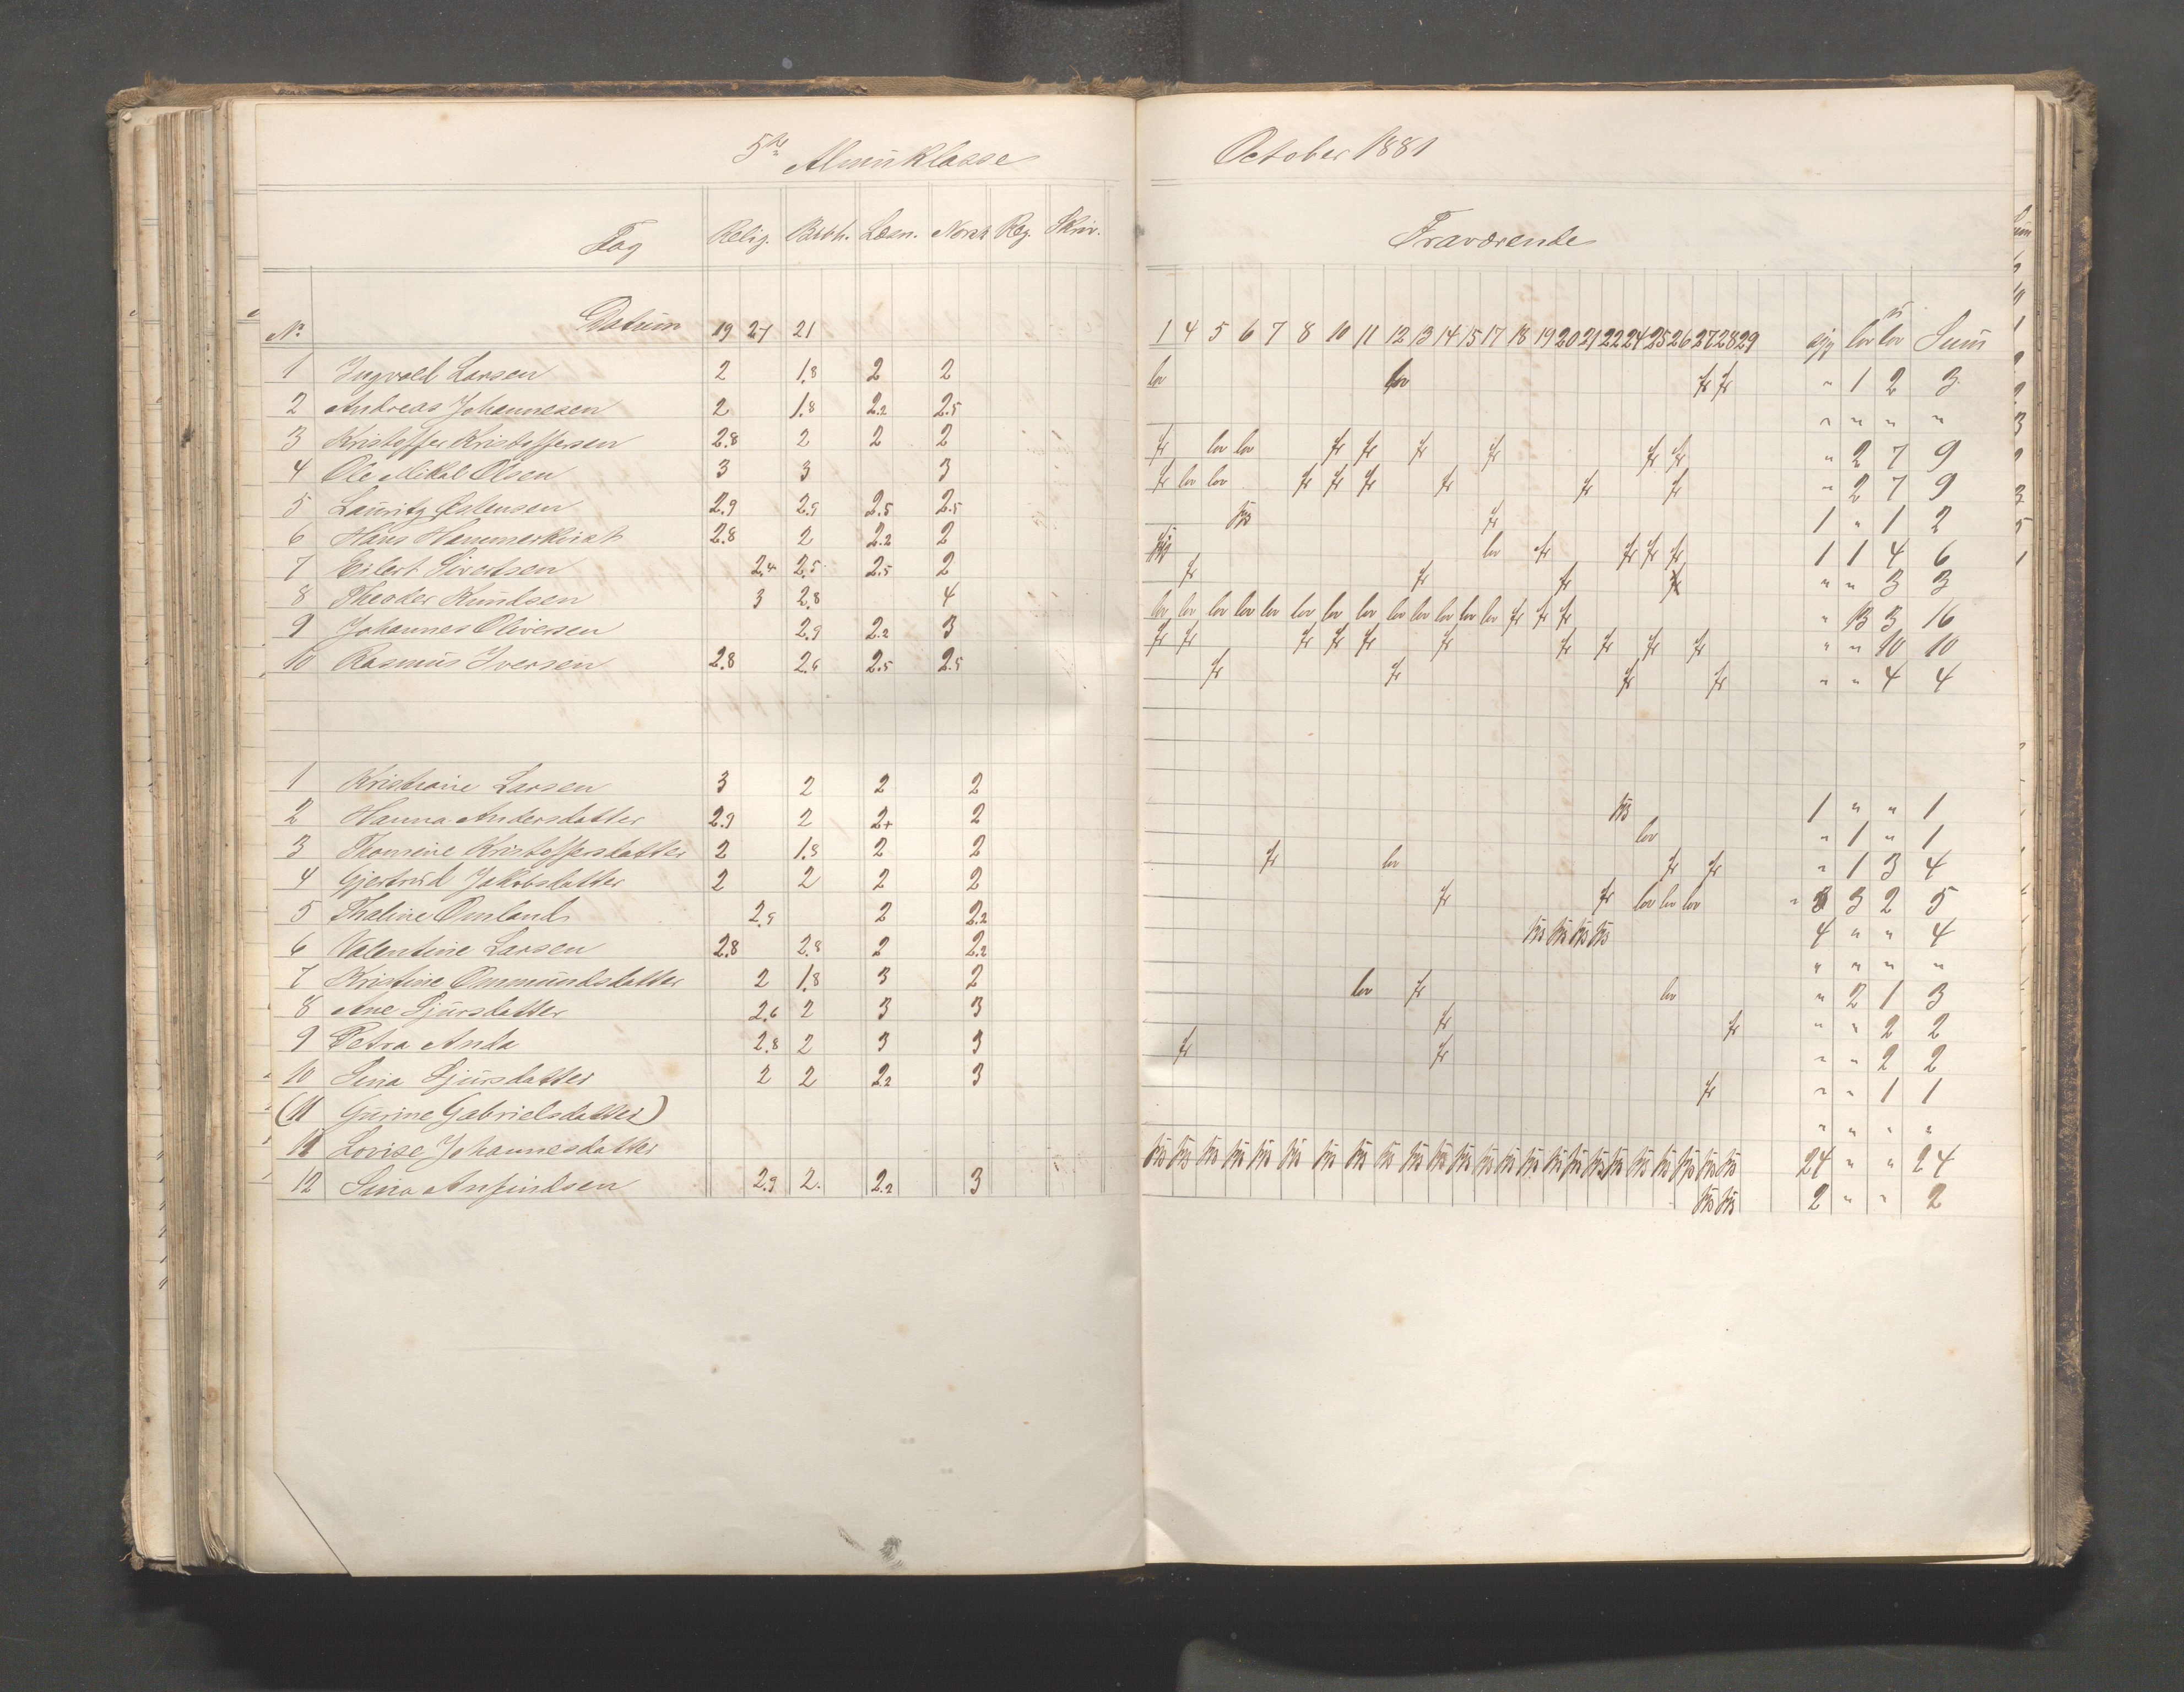 5te Almuklasse
Fag Relig. Bibh. Læsn. Norsk Reg. Skriv.
No. Datum 19 27 21
1 Ingvald Larsen 2 1.8 2 2
2 Andreas Johannesen 2 1.8 2.2 2.5
3 Kristoffer Kristoffersen 2.8 2 2 2
4 Ole Mikal Olsen 3 3 3
5 Lauritz Eslensen 2.9 2.9 2.5 2.5
6 Hans Hammerkvist 2.8 2 2.2 2
7 Eilert Sivertsen 2.4 2.5 2.5 2
8 Theodor Knudsen 3 2.8 4
9 Johannes Oliversen 2.9 2.2 3
10 Rasmus Iversen 2.8 2.6 2.5 2.5
1 Kristiane Larsen 3 2 2 2
2 Hanna Andersdatter 2.9 2 2+ 2
3 Thomine Kristoffersdatter 2 1.8 2 2
4 Gjertrud Jakobsdatter 2 2 2 2
5 Thaline Omland 2.9 2 2.2
6 Valentine Larsen 2.8 2.8 2 2.2
7 Kristine Ommundsdatter 2 1.8 3 2
8 Ane Sjursdatter 2.6 2 3 3
9 Petra Anda 2.8 2 3 3
10 Sina Sjursdatter 2 2 2.2 3
(11 Gurine Gabrielsdatter)
11 Lovise Johannesdatter
12 Sina Anfindsen 2.9 2. 2.2 3
October 1881
Fraværende
1 4 5 6 7 8 10 11 12 13 14 15 17 18 19 20 21 22 24 25 26 27 28 29 syg lov lov Sum
lov lov fr fr " 1 2 3
" " " "
fr lov lov fr fr fr fr fr fr " 2 7 9
fr lov lov fr fr fr fr fr fr " 2 7 9
sys fr 1 " 1 2
syg lov fr fr fr fr 1 1 4 6
fr fr fr " " 3 3
lov lov lov lov lov lov lov lov lov lov lov lov lov fr fr fr " 13 3 16
fr fr fr fr fr fr fr fr fr fr " " 10 10
fr fr fr fr " " 4 4
sys 1 " " 1
lov " 1 " 1
fr lov fr fr " 1 3 4
fr fr lov lov lov " 3 2 5
sys sys sys sys 4 " " 4
" " " "
lov fr lov " 2 1 3
fr fr " " 2 2
fr fr " " 2 2
fr " " 1 1
" " " "
sys sys sys sys sys sys sys sys sys sys sys sys sys sys sys sys sys sys sys sys sys sys sys sys 24 " " 24
sys sys 2 " " 2